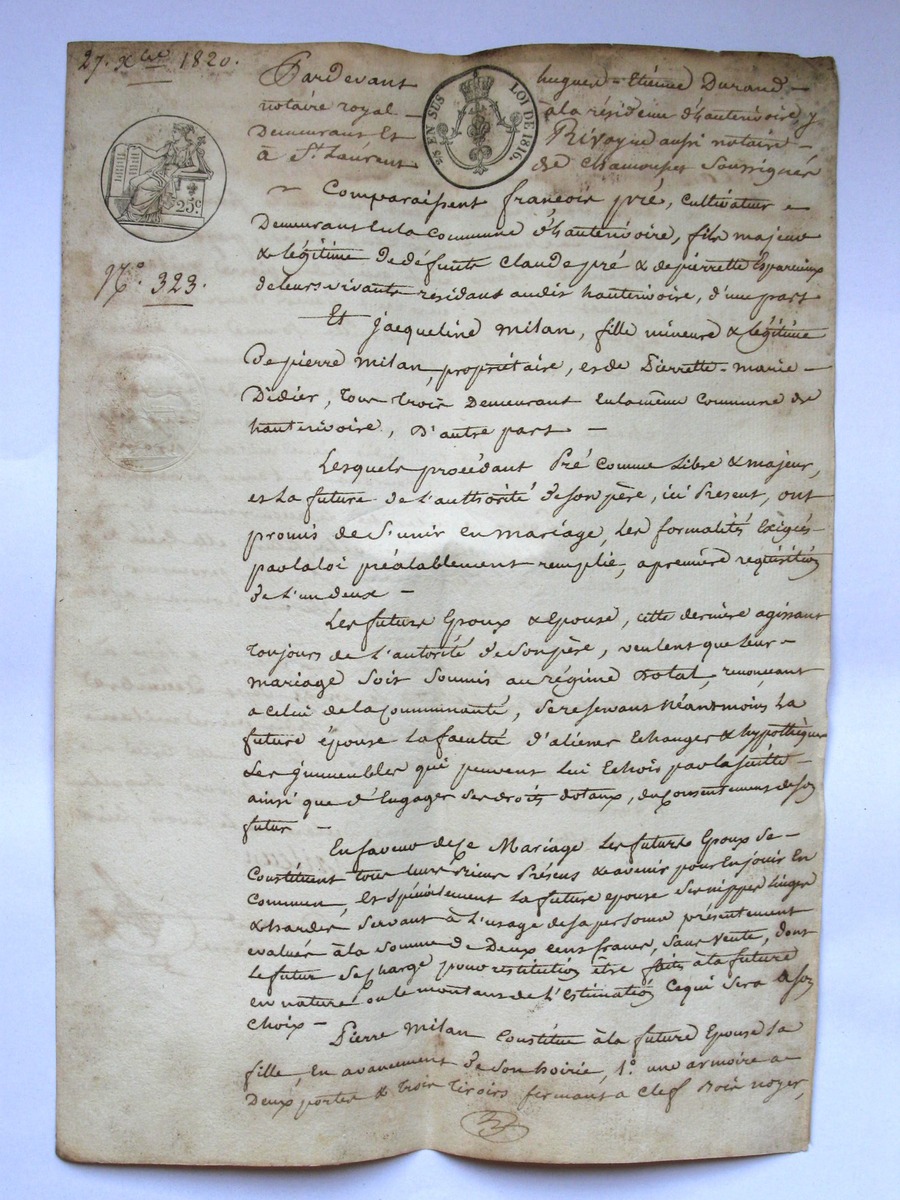 27. Xbre 1820.
Pardevant hugues-Etienne Durand
notaire royal à la résidence d'hauterivoire y
Demeurant Et Rivoyre aussi notaire
à St. Laurent de Chamousset Soussignés
EN SUS
LOI DE 1816.
25c.
N.° 323.
Comparaissent françois pré, Cultivateur
Demeurant En la Commune d'hauterivoire, fils majeur
& légitime de défunts Claude pré & de pierrette
de leurs vivants résidant audit hauterivoire, d'une part
Et Jacqueline milan, fille mineure & légitime
De pierre milan, propriétaire, et de Pierrette-marie
Didier, Tous Trois Demeurant En la même Commune de
hauterivoire, D'autre part
Lesquels procédant Pré Comme Libre & majeur,
et La future de L'authorité de Son père, ici Present, ont
promis de S'unir en mariage, Les formalités Exigées
par la loi préalablement remplie, a première requisition
de L'un deux
Les futurs Epoux & Epouse, cette dernière agissant
Toujours de L'autorité de Son père, veulent que leur
mariage Soit Soumis au régime Dotal, renonceant
a Celui de la Communauté, Se reservant Néantmoins La
future épouse La faculté d'aliéner Echanger & hypothéquer
Les immeubles qui peuvent Lui Echoir par la Suitte
ainsi que d'Engager Ses droits dotaux, du Consentement de Son
futur
En faveur de Ce Mariage Les futurs Epoux Se
Constituent tous leurs biens Présens & avenir pour En jouir En
Commun, Et Spécialement La future epouse Ses nippes Linges
& hardes Servant à L'usage de Sa personne présentement
evalués à la Somme de Deux cent francs, Sans Vente, dont
Le futur Se charge pour restitution être faite à la future
en nature ou le montant de L'Estimation Ce qui Sera à Son
Choix
Pierre Milan Constitue à la future Epouse Sa
fille, En avancement de Son hoirie, 1.° une armoire a
Deux portes & Trois Tiroirs fermant a Clef Bois noyer,